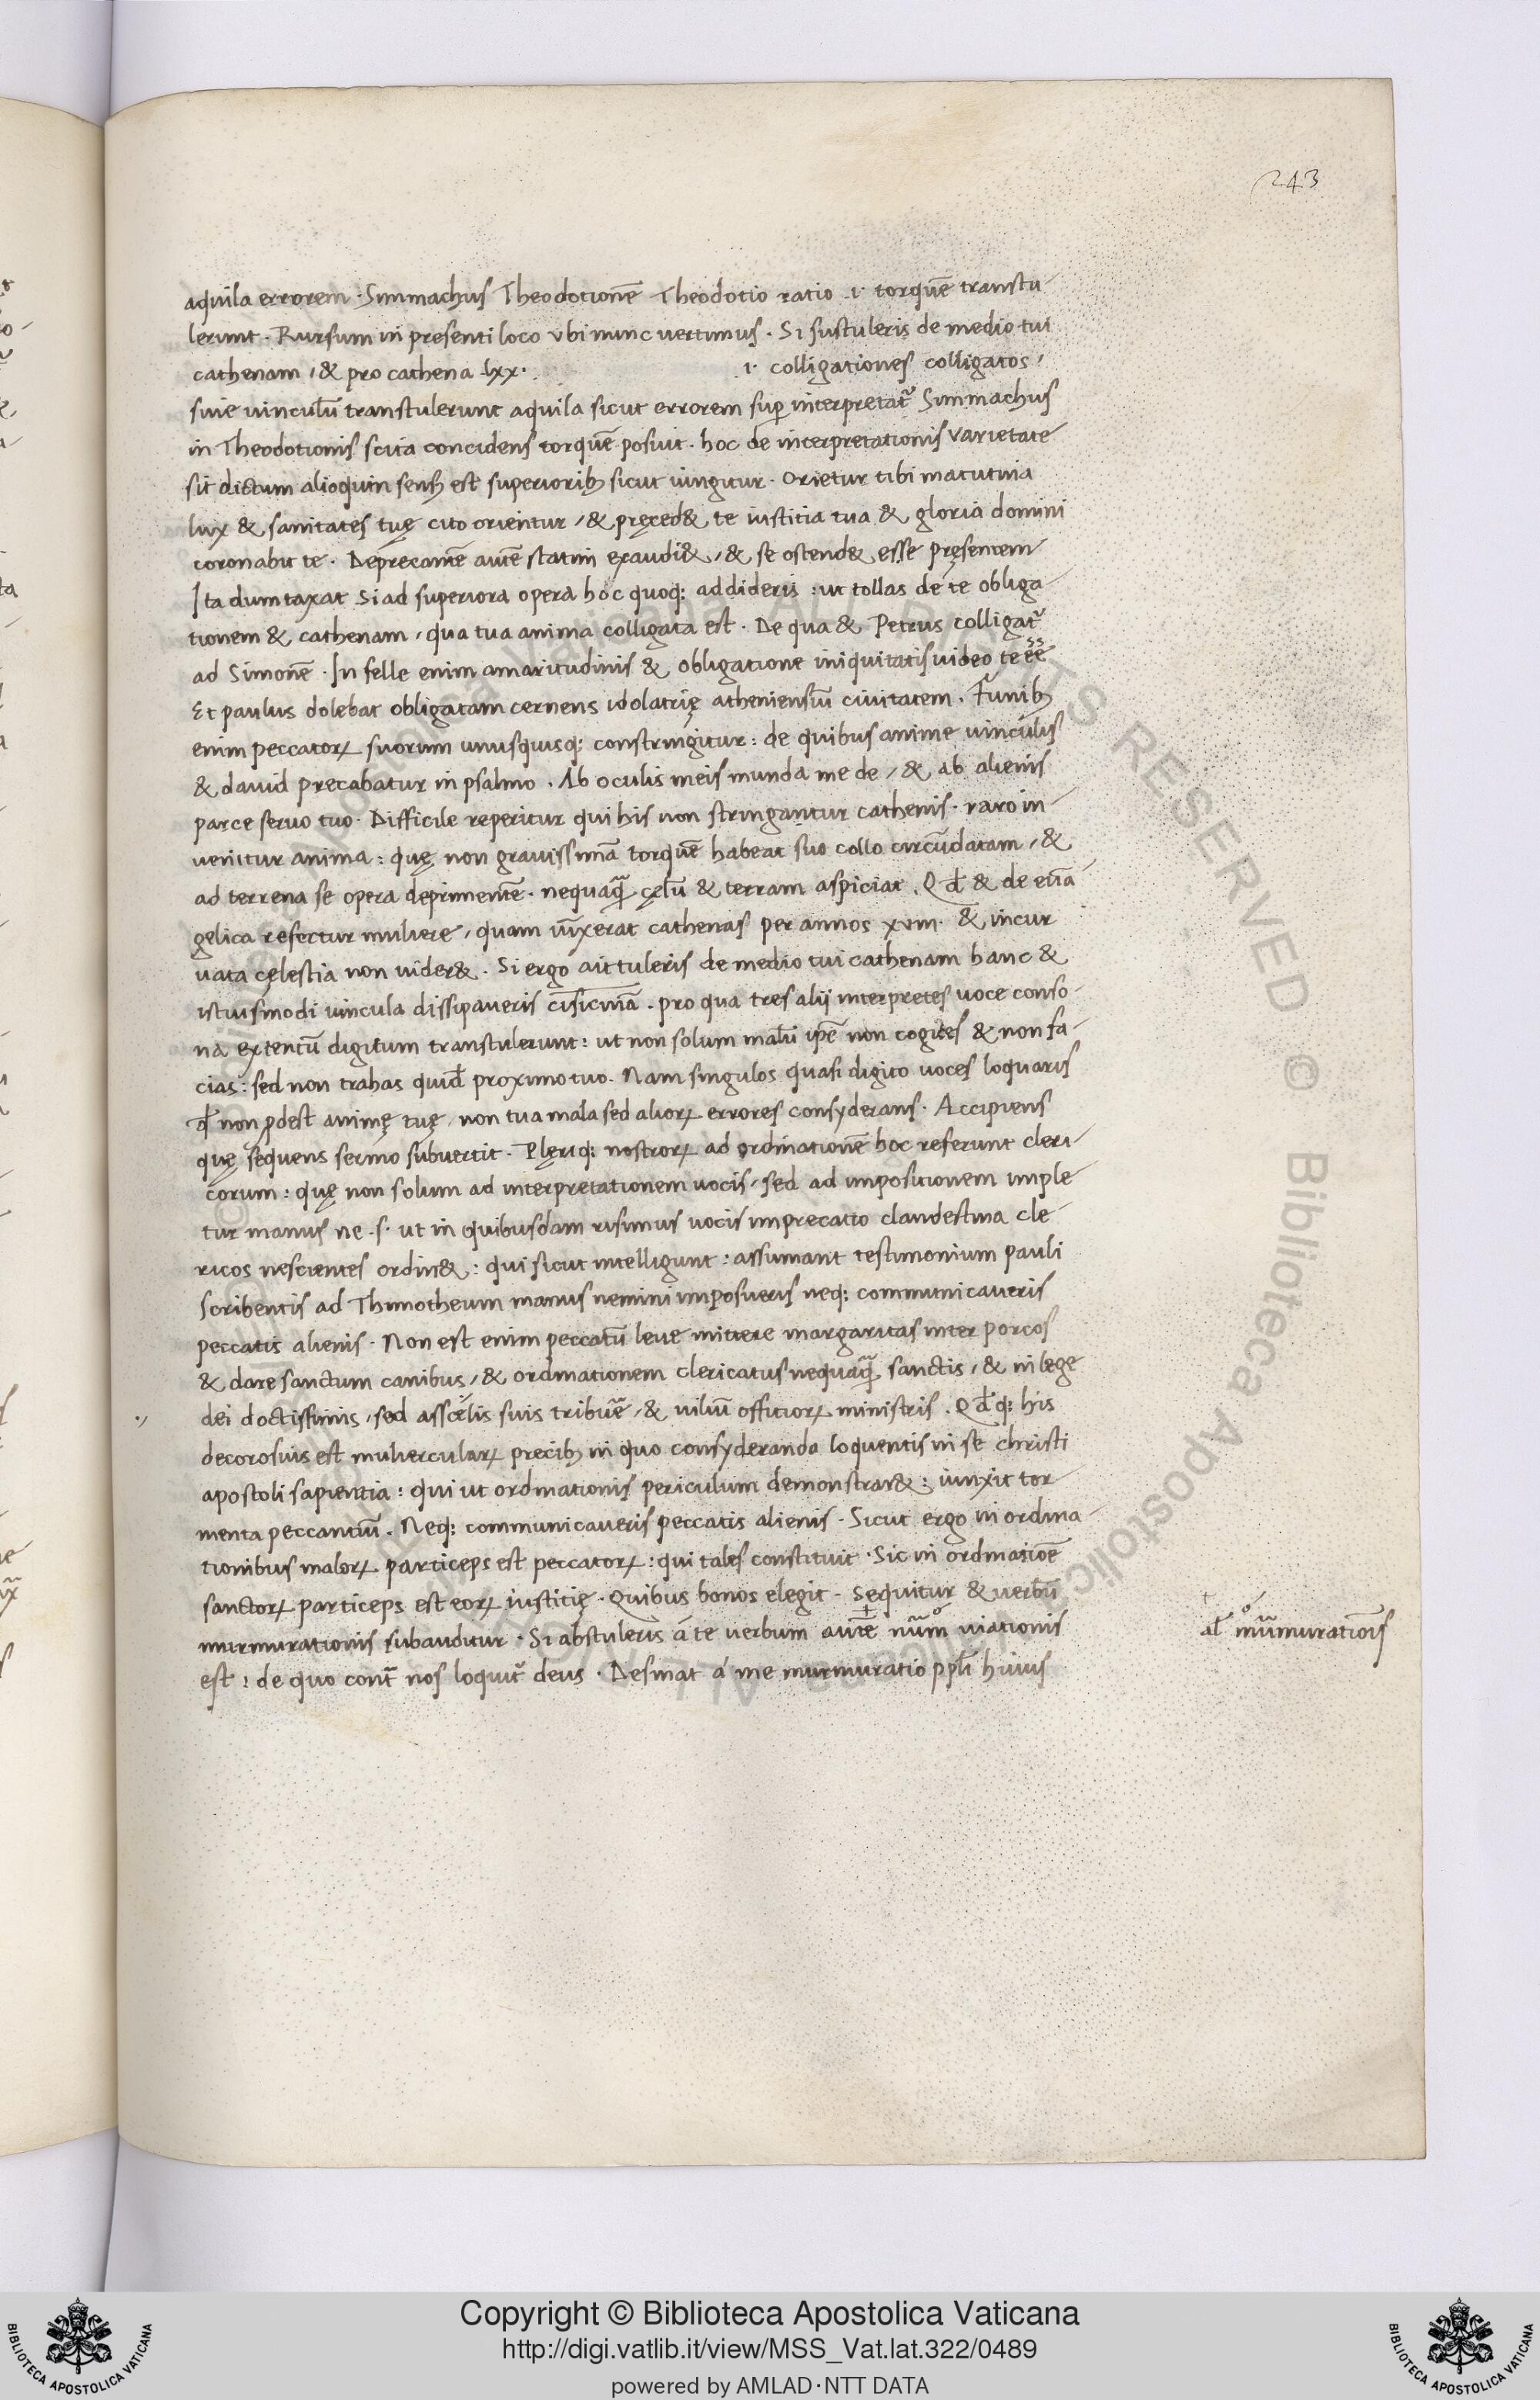 243
aquila errorem · Simmachus Theodotionē Theodotio ratio .i· torquē transtu-
lerunt · Rursum in presenti loco vbi nunc vertimus · Si sustuleris de medio tui
cathenam / & pro cathena lxx· .i· colligationes colligatos /
siue uinculū transtulerunt aquila sicut errorem suꝑ interpretat᷑ Simmachus
in Theodotionis scita concidens torquē posuit · hoc de interpretationis varietate
sit dictum alioquin sensꝰ est superioribꝫ sicut iungitur · Orietur tibi matutina
lux & sanitates tuę cito orientur / & pręced& te iustitia tua & gloria domini
coronabit te · Deprecantē autē statim exaudi& / & se ostend& esse pręsentem
Ita dumtaxat Si ad superiora opera hoc quoqꝫ addideris : ut tollas de te obliga-
tionem & cathenam / qua tua anima colligata est · De qua & Petrus colligat᷑
ad Simonē · In felle enim amaritudinis & obligatione iniquitatis uideo te ēē
Et paulus dolebat obligatam cernens idolatrię atheniensiū ciuitatem . Funibꝫ
enim peccatoꝝ suorum unusquisqꝫ constringitur : de quibus anime uinculis
& dauid precabatur in psalmo . Ab oculis meis munda me de / & ab alienis
parce seruo tuo · Difficile reperitur qui his non stringantur cathenis · raro in-
uenitur anima : quę non grauissimā torquē habeat suo collo circūdatam / &
ad terrena se opera deprimentē · nequaꝗ̃ cęlū & terram aspiciat . Qđ & de euā
gelica refertur muliere / quam uīxerat cathenas per annos xvm· & incur
uata cęlestia non uider& . Si ergo ait tuleris de medio tui cathenam hanc &
istiusmodi uincula dissipaueris c̄isicinā . pro qua tres alij interpretes uoce conso-
na extentū digitum transtulerunt : ut non solum malū ip̄e non cogites & non fa-
cias : sed non trahas quiđ proximo tuo . Nam singulos quasi digito uoces loquaris
qđ non ꝓdest animę tuę / non tua mala sed alioꝝ errores consyderans · Accipiens
quę sequens sermo subuertit · Plęriqꝫ nostroꝝ ad ordinationē hoc referunt cleri-
corum : quę non solum ad interpretationem uocis / sed ad impositionem imple-
tur manus ne .s· ut in quibusdam risimus uocis imprecatio clandestina cle-
ricos nescientes ordin& : qui sicut intelligunt : assumant testimonium pauli
Scribentis ad Thimotheum manus nemini imposueris neqꝫ communicaueris
peccatis alienis · Non est enim peccatū leue mittere margaritas inter porcos
& dare sanctum canibus / & ordinationem clericatus nequaꝗ̃ sanctis / & in lege
dei doctissimis / sed asscēlis suis tribuē / & uiliū officioꝝ ministris . Qđqꝫ his
decorosius est muliercularꝝ precibꝫ in quo consyderanda loquentis in se christi
apostoli sapientia : qui ut ordinationis periculum demonstrar& : iunxit tor-
menta peccantiū . Neqꝫ communicaueris peccatis alienis · Sicut ergo in ordina-
tionibus maloꝝ particeps est peccatoꝝ : qui tales constituit · Sic in ordinatiōē
sanctoꝝ particeps est eoꝝ iustitię · Quibus bonos elegit · Sequitur & uerbū
murmurationis subauditur · Si abstuleris á te uerbum autē nūm uiationis
al̄ mūmurationis
est : de quo contͣ nos loquit᷑ deus · Desinat á me murmuratio ppłi huius
Copyright © Biblioteca Apostolica Vaticana
http://digi.vatlib.it/view/MSS_Vat.lat.322/0489
powered by AMLAD·NTT DATA
BIBLIOTECA APOSTOLICA VATICANA
BIBLIOTECA APOSTOLICA VATICANA